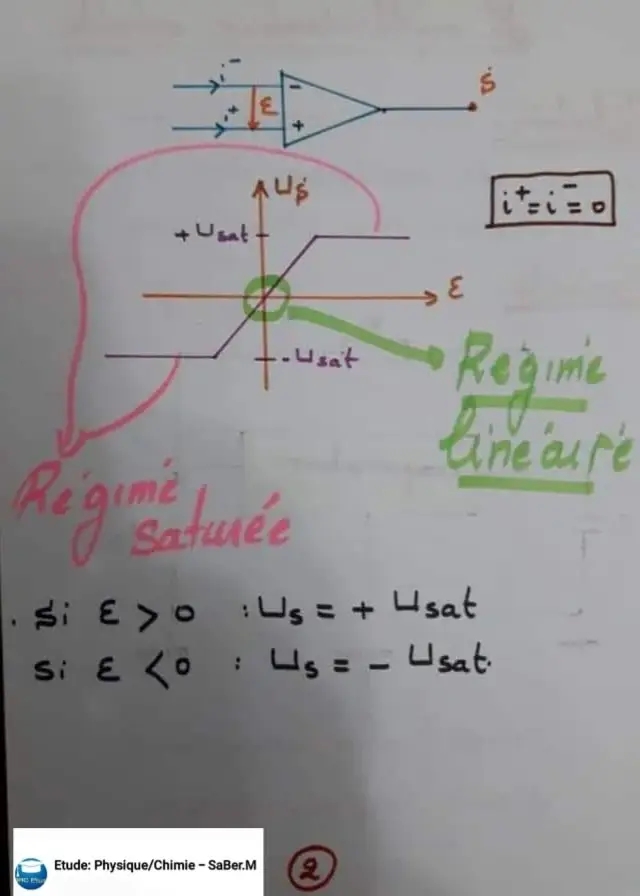 i⁻
S
ε
i⁺
-
+
Us
i⁺=i⁻=0
+Usat
ε
-Usat
Régime
linéaire
Régime
saturée
. Si ε > 0 : Us = + Usat
Si ε < 0 : Us = - Usat.
Etude: Physique/Chimie – SaBer.M
2